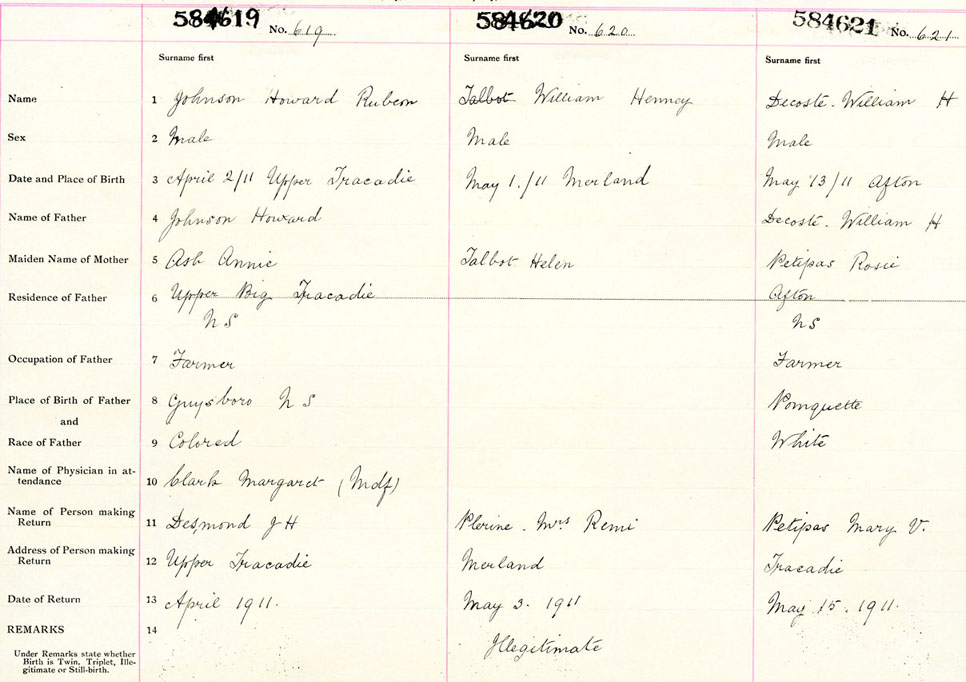 584619 No. 619 584620 No. 620 584621 No. 621
Surname first Surname first Surname first
Name 1 Johnson Howard Rubeon Talbot William Henney Decoste. William H
Sex 2 Male Male Male
Date and Place of Birth 3 April 2/11 Upper Tracadie May 1./11 Merland May 13/11 Afton
Name of Father 4 Johnson Howard Decoste. William H
Maiden Name of Mother 5 Ash Annie Talbot Helen Petipas Rosie
Residence of Father 6 Upper Big Tracadie Afton
NS NS
Occupation of Father 7 Farmer Farmer
Place of Birth of Father 8 Guysboro NS Pomquette
and
Race of Father 9 Colored White
Name of Physician in at-
tendance 10 Clark Margaret (Mdf)
Name of Person making
Return 11 Desmond J H Plerine. Mrs Remi Petipas Mary V.
Address of Person making
Return 12 Upper Tracadie Merland Tracadie
Date of Return 13 April 1911. May 3. 1911 May 15. 1911.
REMARKS 14
Illegitimate
Under Remarks state whether
Birth is Twin, Triplet, Ille-
gitimate or Still-birth.